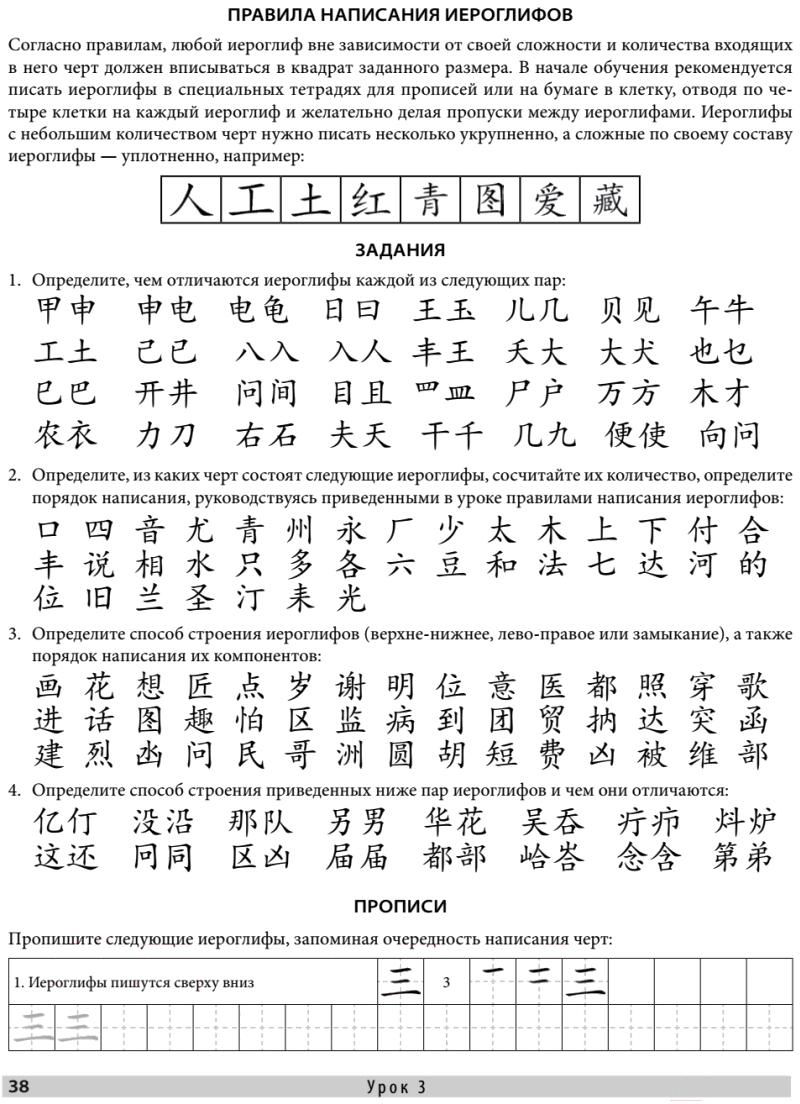 ПРАВИЛА НАПИСАНИЯ ИЕРОГЛИФОВ
Согласно правилам, любой иероглиф вне зависимости от своей сложности и количества входящих
в него черт должен вписываться в квадрат заданного размера. В начале обучения рекомендуется
писать иероглифы в специальных тетрадях для прописей или на бумаге в клетку, отводя по че-
тыре клетки на каждый иероглиф и желательно делая пропуски между иероглифами. Иероглифы
с небольшим количеством черт нужно писать несколько укрупненно, а сложные по своему составу
иероглифы — уплотненно, например:
人 工 土 红 青 图 爱 藏
ЗАДАНИЯ
1. Определите, чем отличаются иероглифы каждой из следующих пар:
甲申 申电 电龟 日曰 王玉 儿几 贝见 午牛
工土 己已 八入 入人 丰王 夭大 大犬 也乜
巳巴 开井 问间 目且 罒皿 尸户 万方 木才
农衣 力刀 右石 夫天 干千 几九 便使 向问
2. Определите, из каких черт состоят следующие иероглифы, сосчитайте их количество, определите
порядок написания, руководствуясь приведенными в уроке правилами написания иероглифов:
口 四 音 尤 青 州 永 厂 少 太 木 上 下 付 合
丰 说 相 水 只 多 各 六 豆 和 法 七 达 河 的
位 旧 兰 圣 汀 耒 光
3. Определите способ строения иероглифов (верхне-нижнее, лево-правое или замыкание), а также
порядок написания их компонентов:
画 花 想 匠 点 岁 谢 明 位 意 医 都 照 穿 歌
进 话 图 趣 怕 区 监 病 到 团 贸 抐 达 突 函
建 烈 凼 问 民 哥 洲 圆 胡 短 费 凶 被 维 部
4. Определите способ строения приведенных ниже пар иероглифов и чем они отличаются:
亿仃 没沿 那队 另男 华花 吴吞 疔疖 炓炉
这还 冋同 区凶 届届 都部 峆峇 念含 第弟
ПРОПИСИ
Пропишите следующие иероглифы, запоминая очередность написания черт:
1. Иероглифы пишутся сверху вниз 三 3 一 二 三
三 三
38 Урок 3